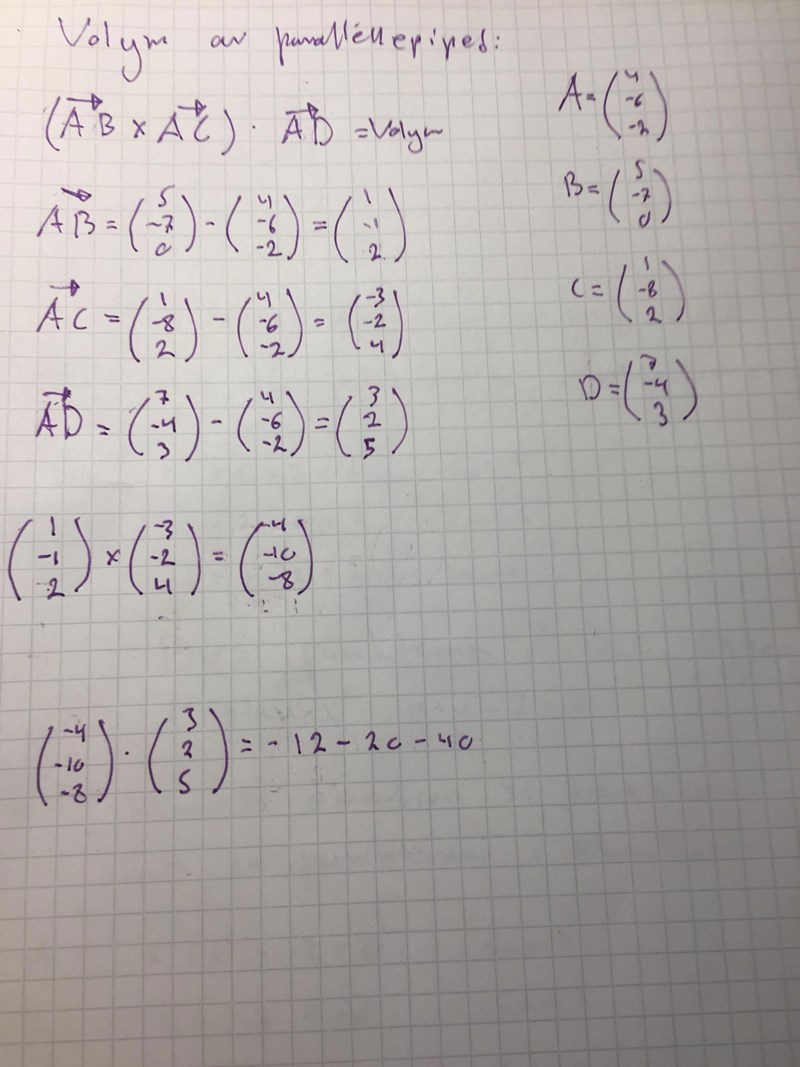 Volym av parallellepiped:
(AB × AC) · AD = Volym
A = (4 -6 -2)
B = (5 -7 0)
C = (1 -8 2)
D = (7 -4 3)
AB = (5 -7 0) - (4 -6 -2) = (1 -1 2)
AC = (1 -8 2) - (4 -6 -2) = (-3 -2 4)
AD = (7 -4 3) - (4 -6 -2) = (3 2 5)
(1 -1 2) × (-3 -2 4) = (-4 -10 -8)
(-4 -10 -8) · (3 2 5) = -12 - 20 - 40